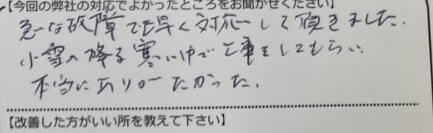 【今回の弊社の対応でよかったところをお聞かせください】
急な故障でも早く対応して頂きました。
小雪の降る寒い中で工事をしてもらい
本当にありがたかった。
【改善した方がいい所を教えて下さい】